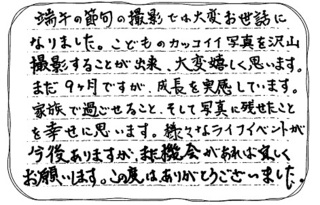 端午の節句の撮影では大変お世話に
なりました。こどものカッコイイ写真を沢山
撮影することが出来、大変嬉しく思います。
まだ9ヶ月ですが、成長を実感しています。
家族で過ごせること、そして写真に残せたこと
を幸せに思います。様々なライフイベントが
今後ありますが、また機会があれば宜しく
お願いします。この度はありがとうございました。